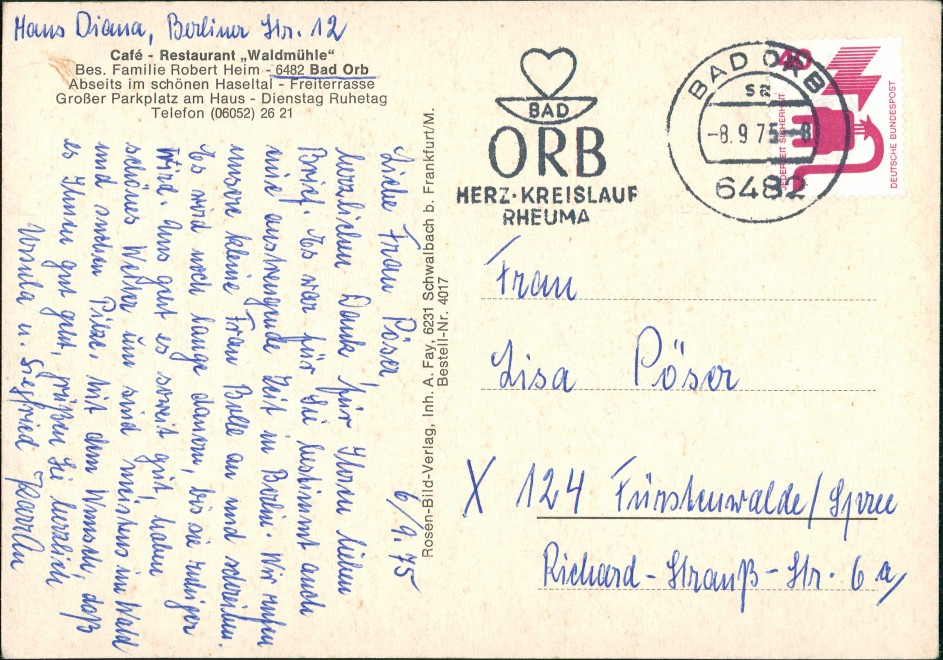 Haus Diana, Berliner Str. 12
Café - Restaurant „Waldmühle"
Bes. Familie Robert Heim - 6482 Bad Orb
Abseits im schönen Haseltal - Freiterrasse
Großer Parkplatz am Haus - Dienstag Ruhetag
Telefon (06052) 26 21
6/9. 75
Liebe Frau Pöser,
herzlichen Dank für Ihren lieben
Brief. Es war für Sie bestimmt auch
eine aufregende Zeit in Berlin. Wir rufen
unsere kleine Frau Bolle an und schreiben.
Es wird noch lange dauern, bis sie ruhiger
wird. Uns geht es soweit gut, haben
schönes Wetter und sind meistens im Wald
und suchen Pilze. Mit dem Wunsch, daß
es Ihnen gut geht, grüßen Sie herzlich
Ursula u. Siegfried
Rosen-Bild-Verlag, Inh. A. Fay, 6231 Schwalbach b. Frankfurt/M.
Bestell-Nr. 4017
BAD
ORB
HERZ·KREISLAUF
RHEUMA
BAD ORB
sa
-8.9.75--8
6482
40
JEDERZEIT SICHERHEIT
DEUTSCHE BUNDESPOST
Frau
Lisa Pöser
X 124 Fürstenwalde/Spree
Richard-Strauß-Str. 6 a/